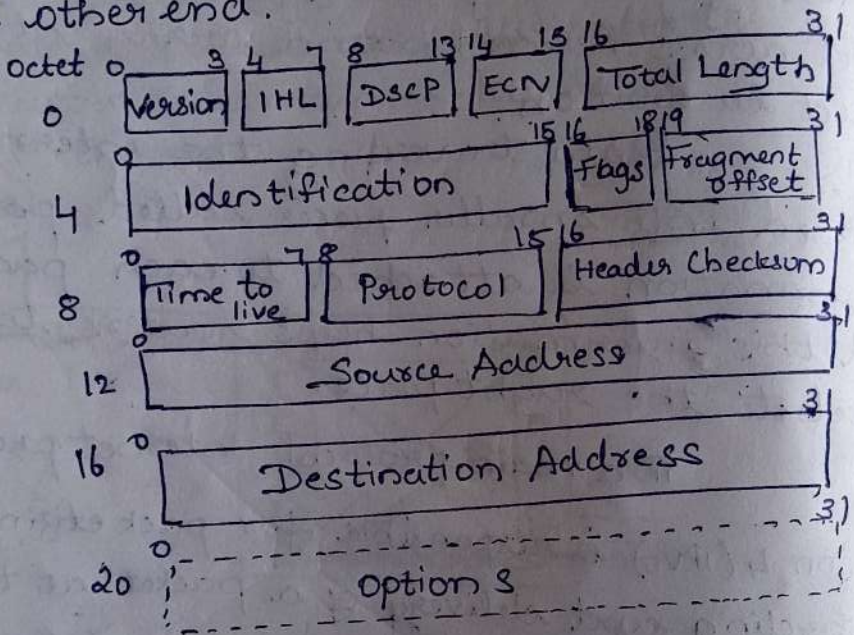 other end.
octet 0 3 4 7 8 13 14 15 16 31
0 Version IHL DSCP ECN Total Length
0 15 16 18 19 31
4 Identification Flags Fragment
offset
0 7 8 15 16 31
8 Time to Protocol Header Checksum
live
0 31
12 Source Address
16 0 31
Destination Address
0 31
20 options